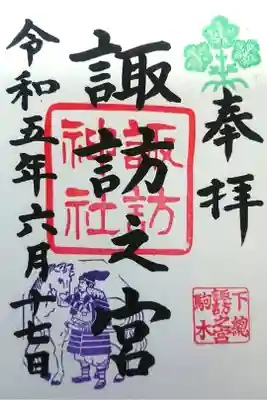 奉拝
下總
諏訪之宮
駒木
諏訪之宮
諏訪
神社
令和五年六月十七日